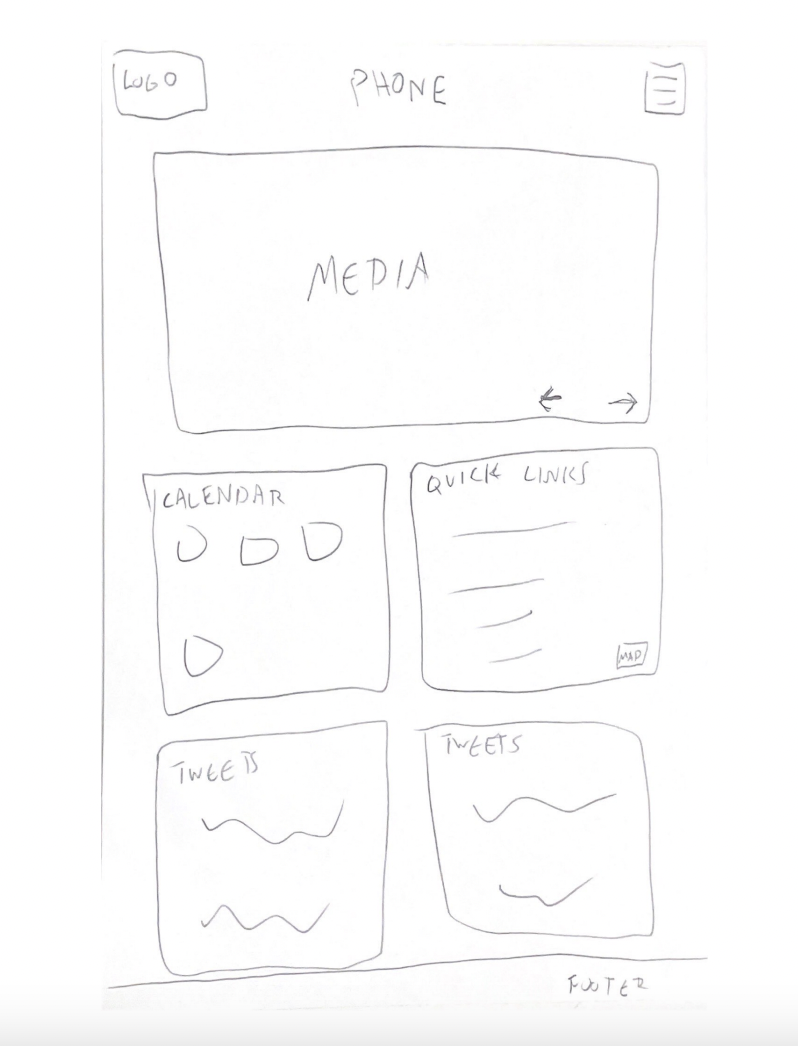 LOGO
PHONE
MEDIA
CALENDAR
QUICK LINKS
MAP
TWEETS
TWEETS
FOOTER